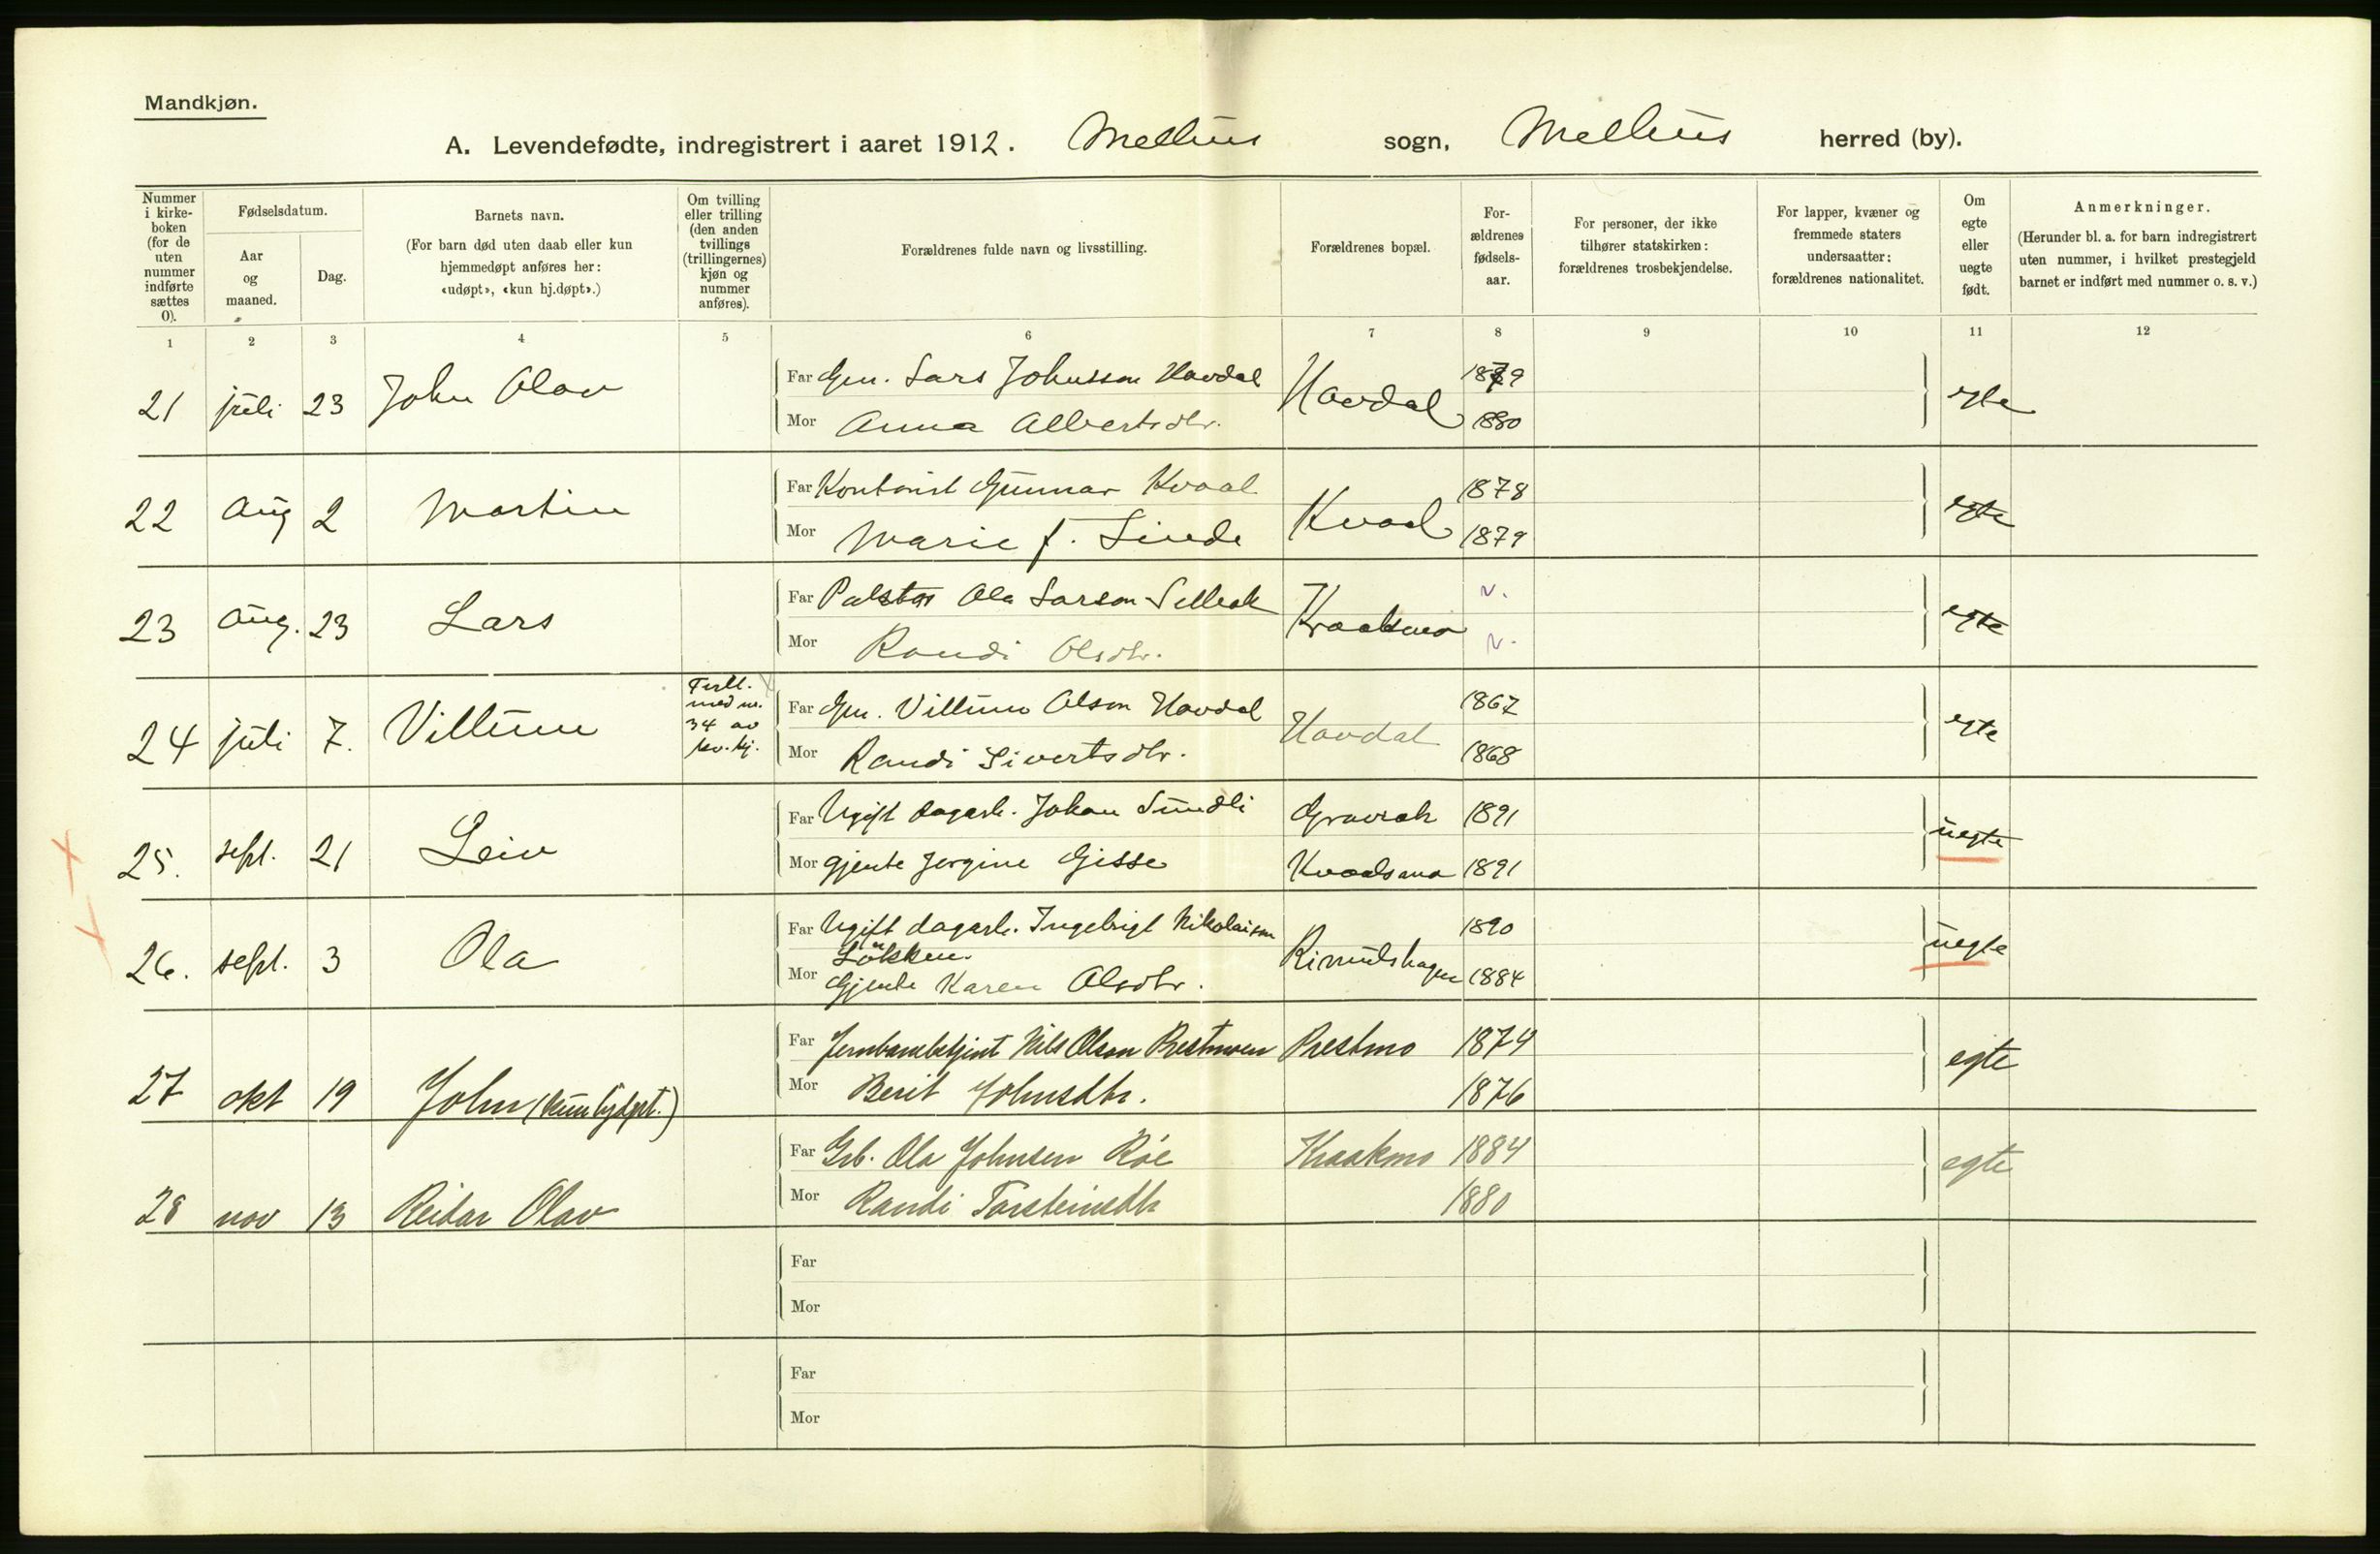 Mandkjøn.
A. Levendefødte, indregistrert i aaret 1912. Melhus sogn, Melhus herred (by).
Nummer i kirke-boken (for de uten nummer indførte sættes 0).
Fødselsdatum.
Aar og maaned.
Dag.
Barnets navn.
(For barn død uten daab eller kun hjemmedøpt anføres her: «udøpt», «kun hj.døpt».)
Om tvilling eller trilling (den anden tvillings (trillingernes) kjøn og nummer anføres).
Forældrenes fulde navn og livsstilling.
Forældrenes bopæl.
For-ældrenes fødsels-aar.
For personer, der ikke tilhører statskirken: forældrenes trosbekjendelse.
For lapper, kvæner og fremmede staters undersaatter: forældrenes nationalitet.
Om egte eller uegte født.
Anmerkninger.
(Herunder bl. a. for barn indregistrert uten nummer, i hvilket prestegjeld barnet er indført med nummer o. s. v.)
1 2 3 4 5 6 7 8 9 10 11 12
21 juli 23 John Olav Far Gm. Lars Johnsson Havdal Havdal 1879 egte
Mor Anna Albertsdtr. 1880
22 Aug 2 Martin Far Kontorist Gunnar Kvaal Kvaal 1878 egte
Mor Marie f. Linde 1879
23 Aug. 23 Lars Far Ola Larson Kraakmo v. egte
Mor Randi Olsdtr. v.
24 juli 7. Villum Tvill. med nr. 34 av kv. kj. Far Gm. Villum Olson Havdal Havdal 1867 egte
Mor Randi Sivertsdtr. 1868
25. sept. 21 Leiv Far Ugift dagarb. Johan Sundli Gravrak 1891 uegte
Mor Gjente Jorgine Gisse Kvaalsmo 1891
26. sept. 3 Ola Far Ugift dagarb. Ingebrigt Nikolaison Løkken. Rimulshagen 1890 uegte
Mor Gjente Karen Olsdtr. 1884
27 okt 19 John (kun hjdpt.) Far Jernbanebetjent Nils Olson Prestmoen Prestmo 1874 egte
Mor Berit Johnsdtr. 1876
28 nov 13 Reidar Olav Far Grb. Ola Johnsen Røe Kraakmo 1884 egte
Mor Randi Torsteinsdtr 1880
Far
Mor
Far
Mor